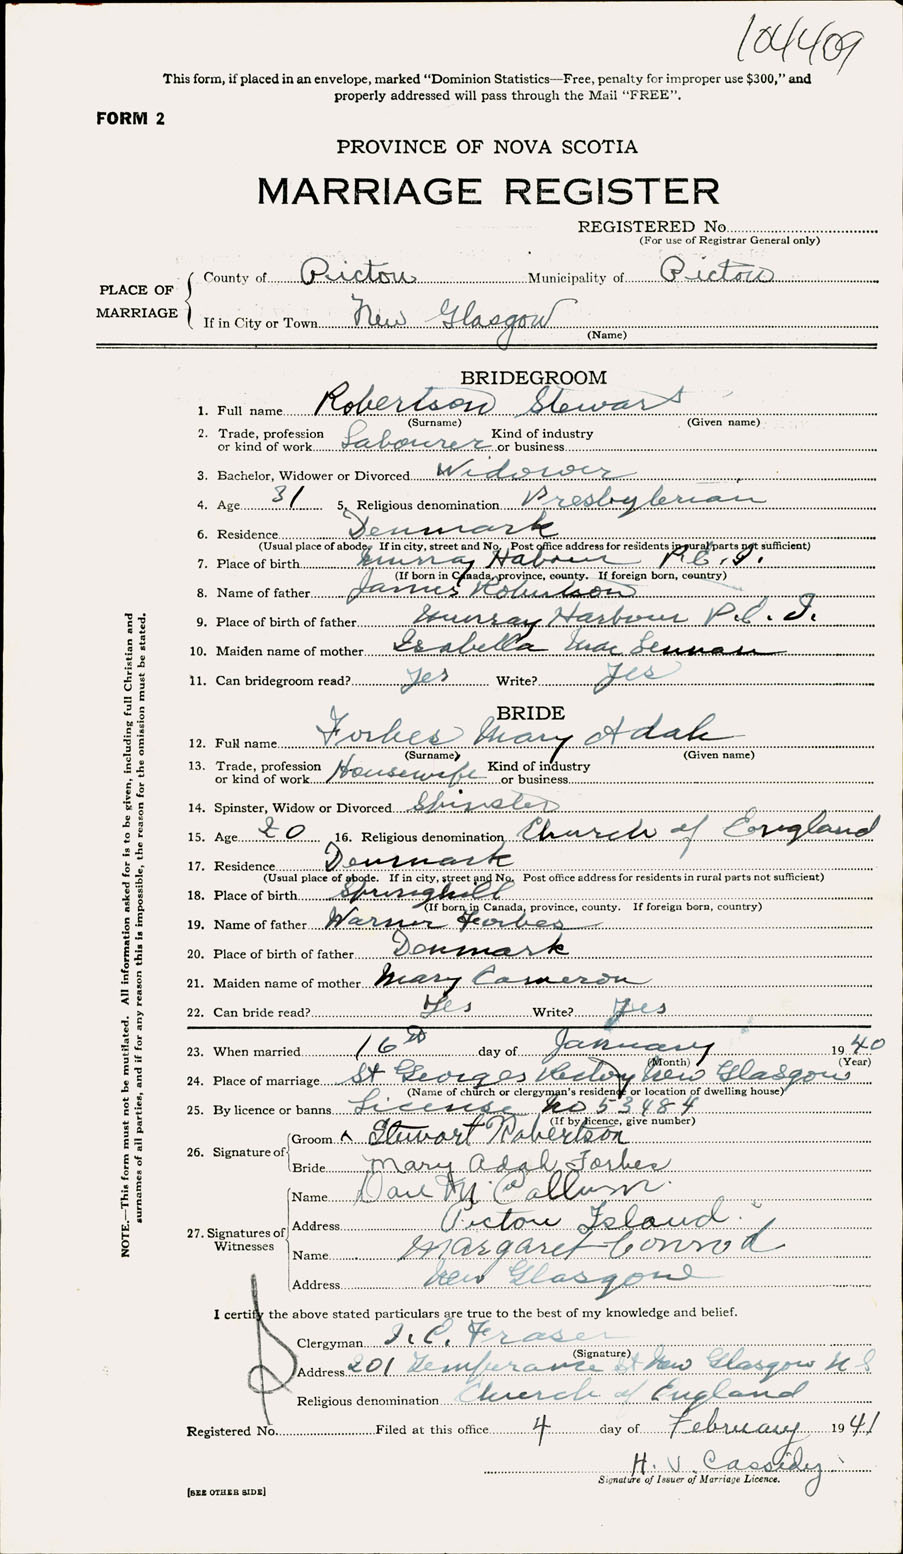 104409
This form, if placed in an envelope, marked "Dominion Statistics—Free, penalty for improper use $300," and
properly addressed will pass through the Mail "FREE".
FORM 2
PROVINCE OF NOVA SCOTIA
MARRIAGE REGISTER
REGISTERED No.
(For use of Registrar General only)
PLACE OF MARRIAGE
County of Pictou Municipality of Pictou
If in City or Town New Glasgow
(Name)
BRIDEGROOM
1. Full name Robertson Stewart
(Surname) (Given name)
2. Trade, profession or kind of work Labourer Kind of industry or business
3. Bachelor, Widower or Divorced Widower
4. Age 31 5. Religious denomination Presbyterian
6. Residence Denmark
(Usual place of abode. If in city, street and No. Post office address for residents in rural parts not sufficient)
7. Place of birth Murray Habour P.E.I.
(If born in Canada, province, county. If foreign born, country)
8. Name of father James Robertson
9. Place of birth of father Murray Harbour P.E.I.
10. Maiden name of mother Isabella Mac Lennan
11. Can bridegroom read? Yes Write? Yes
BRIDE
12. Full name Forbes Mary Adah
(Surname) (Given name)
13. Trade, profession or kind of work Housewife Kind of industry or business
14. Spinster, Widow or Divorced Spinster
15. Age 20 16. Religious denomination Church of England
17. Residence Denmark
(Usual place of abode. If in city, street and No. Post office address for residents in rural parts not sufficient)
18. Place of birth Springhill
(If born in Canada, province, county. If foreign born, country)
19. Name of father Warner Forbes
20. Place of birth of father Denmark
21. Maiden name of mother Mary Cameron
22. Can bride read? Yes Write? Yes
23. When married 16th day of January 1940
(Month) (Year)
24. Place of marriage St Georges Rectory New Glasgow
(Name of church or clergyman's residence or location of dwelling house)
25. By licence or banns License No 53484
(If by licence, give number)
26. Signature of
Groom x Stewart Robertson
Bride Mary Adah Forbes
27. Signatures of Witnesses
Name Dan McCallum
Address Pictou Island
Name Margaret Conrod
Address New Glasgow
I certify the above stated particulars are true to the best of my knowledge and belief.
Clergyman J. C. Fraser
(Signature)
Address 201 Temperance St New Glasgow N S
Religious denomination Church of England
Registered No. Filed at this office 4 day of February 1941
H. V. Cassidy
Signature of Issuer of Marriage Licence.
[SEE OTHER SIDE]
NOTE.—This form must not be mutilated. All information asked for is to be given, including full Christian and
surnames of all parties, and if for any reason this is impossible, the reason for the omission must be stated.